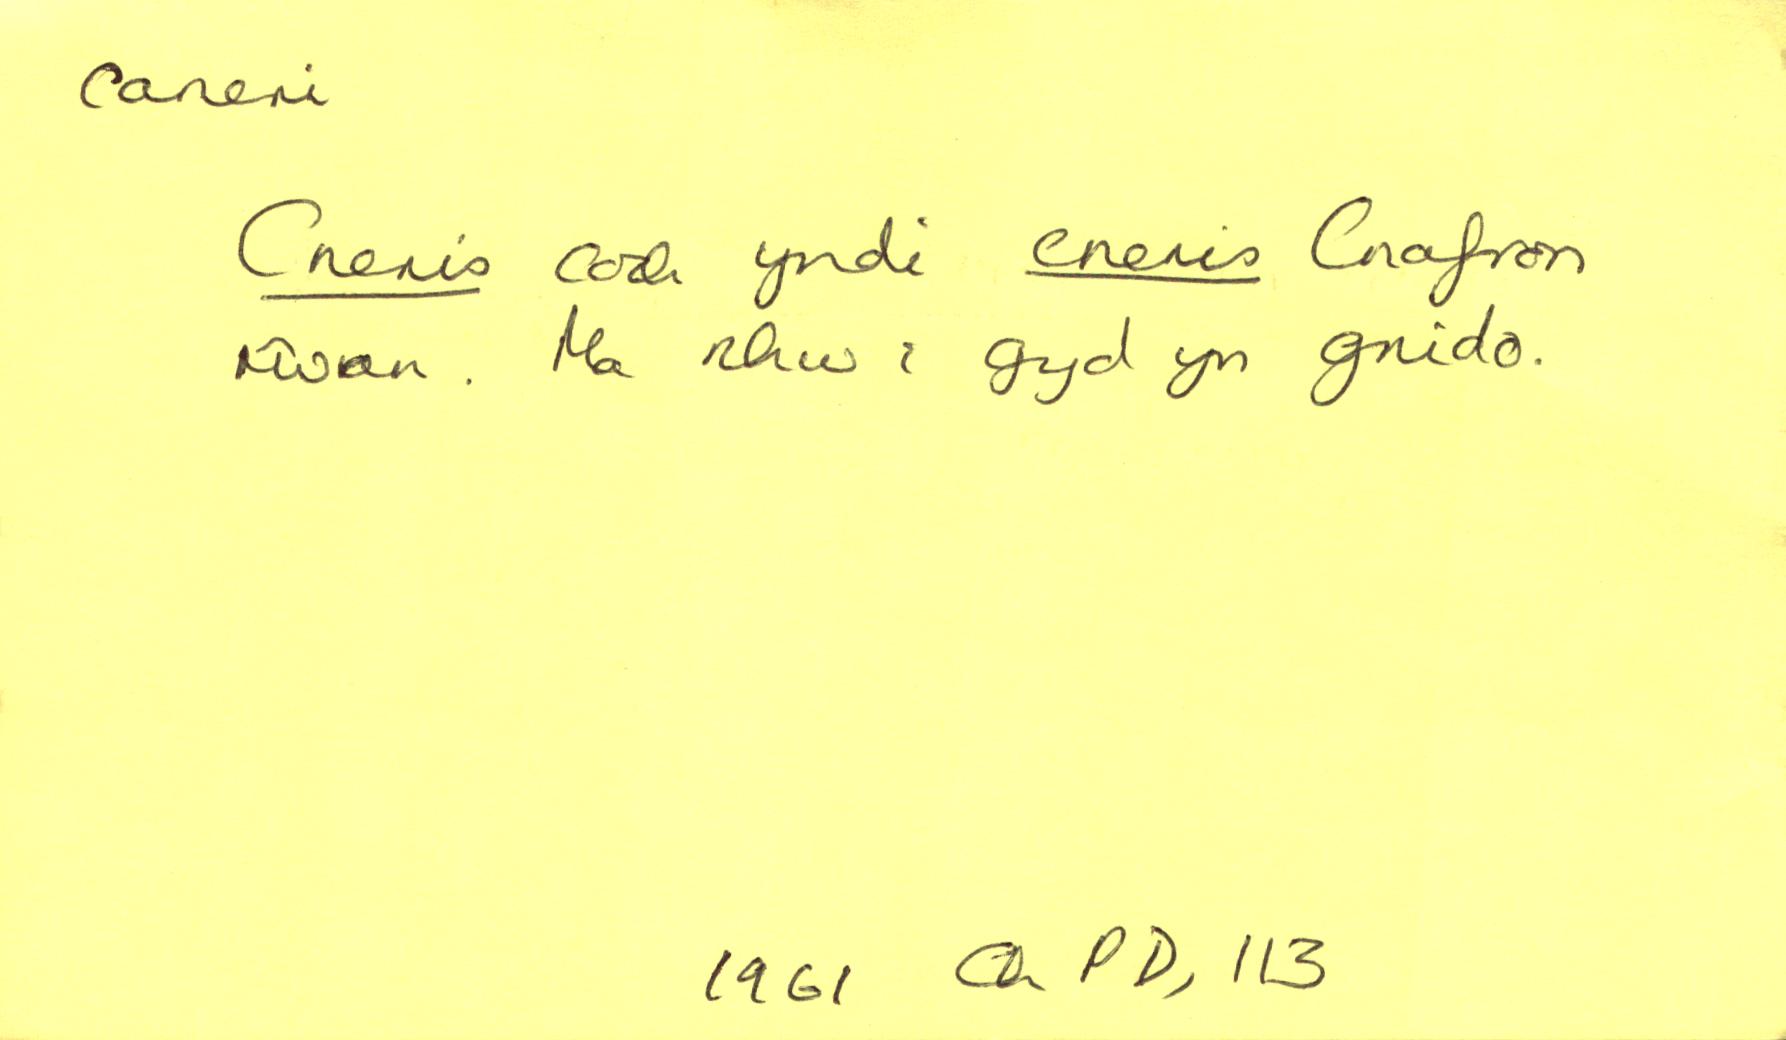 caneri
Cneris coch yndi cneris Cnafron
rŵan. Ma rhw i gyd yn gnido.
1961 Ch PD, 113